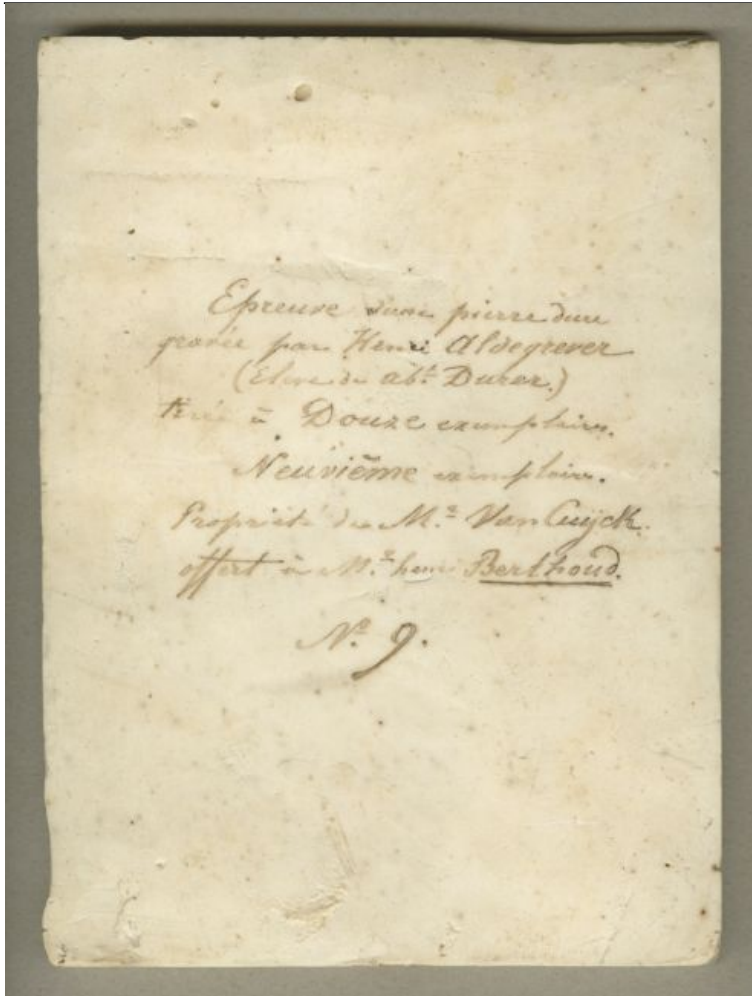 Epreuve d'une pierre dure
gravée par Henri Aldegrever
(Elève de Abt. Durer.)
tirée à Douze exemplaires.
Neuvième exemplaire.
Propriété de Mr. Van Cuÿck.
offert à Mr. henri Berthoud.
No. 9.